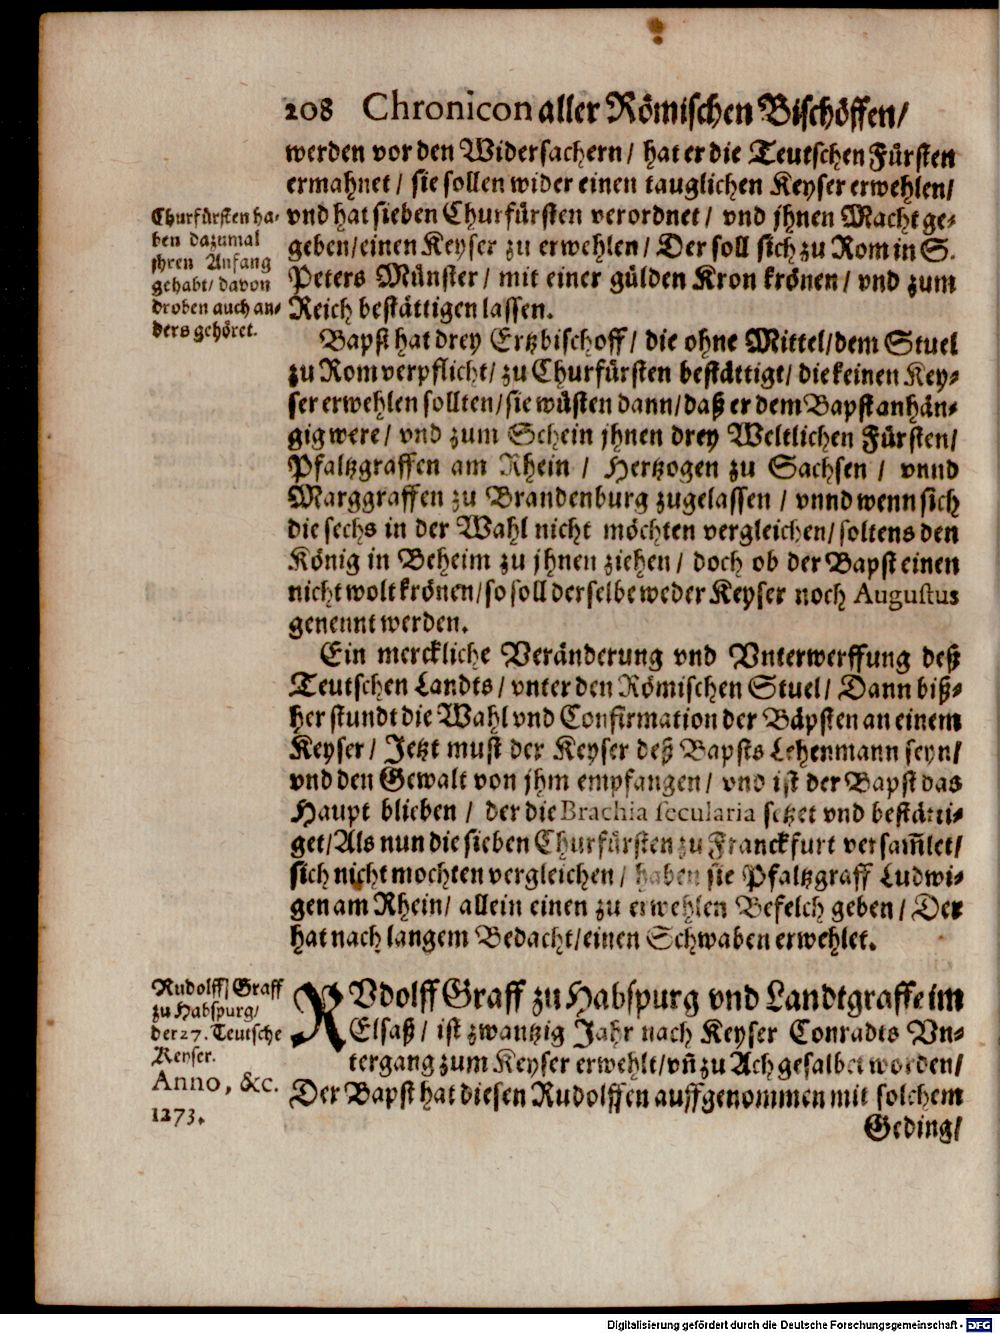 208 Chronicon aller Römischen Bischöffen/
werden vor den Widersachern/ hat er die Teutschen Fürsten
ermahnet/ sie sollen wider einen tauglichen Keyser erwehlen/
vnd hat sieben Churfürsten verordnet/ vnd jhnen Macht ge-
geben/ einen Keyser zu erwehlen/ Der soll sich zu Rom in S.
Peters Münster/ mit einer gülden Kron krönen/ vnd zum
Reich bestättigen lassen.
Churfürsten ha-
ben dazumal
jhren Anfang
gehabt/ davon
droben auch an-
ders gehöret.
Bapst hat drey Ertzbischoff/ die ohne Mittel/ dem Stuel
zu Rom verpflicht/ zu Churfürsten bestättigt/ die keinen Key-
ser erwehlen sollten/ sie wüsten dann/ daß er dem Bapst anhän-
gig were/ vnd zum Schein jhnen drey Weltlichen Fürsten/
Pfaltzgraffen am Rhein/ Hertzogen zu Sachsen/ vnnd
Marggraffen zu Brandenburg zugelassen/ vnnd wenn sich
die sechs in der Wahl nicht möchten vergleichen/ soltens den
König in Beheim zu jhnen ziehen/ doch ob der Bapst einen
nicht wolt krönen/ so soll derselbe weder Keyser noch Augustus
genennt werden.
Ein merckliche Veränderung vnd Vnterwerffung deß
Teutschen Landts/ vnter den Römischen Stuel/ Dann biß-
her stundt die Wahl vnd Confirmation der Bäpsten an einem
Keyser/ Jetzt must der Keyser deß Bapsts Lehenmann seyn/
vnd den Gewalt von jhm empfangen/ vnd ist der Bapst das
Haupt blieben/ der die Brachia secularia setzet vnd bestätti-
get/ Als nun die sieben Churfürsten zu Franckfurt versam̄let/
sich nicht mochten vergleichen/ haben sie Pfaltzgraff Ludwi-
gen am Rhein/ allein einen zu erwehlen Befelch geben/ Der
hat nach langem Bedacht/ einen Schwaben erwehlet.
Rudolff/ Graff
zu Habspurg/
der 27. Teutsche
Keyser.
Anno, &c.
1273.
RVdolff Graff zu Habspurg vnd Landtgraffe im
Elsaß/ ist zwantzig Jahr nach Keyser Conradts Vn-
tergang zum Keyser erwehlt/ vn̄ zu Ach gesalbet worden/
Der Bapst hat diesen Rudolffen auffgenommen mit solchem
Geding/
Digitalisierung gefördert durch die Deutsche Forschungsgemeinschaft - DFG